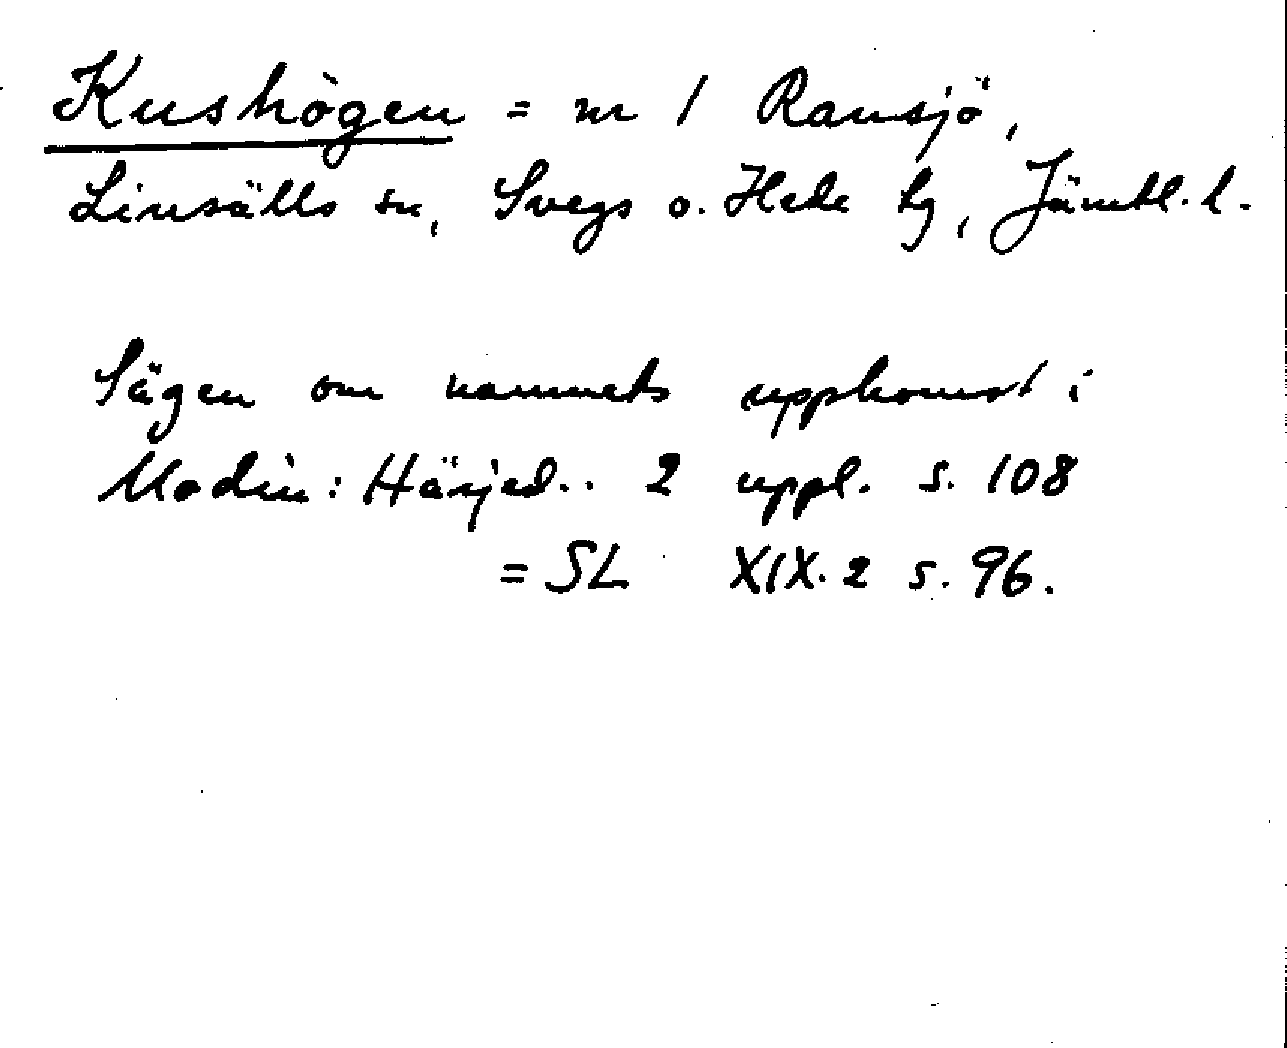 Kushögen = nr 1 Ransjö,
Linsälls sn, Svegs o. Hede tg, Jämtl. l.
Sägen om namnets uppkomst i
Modin: Härjed.. 2 uppl. s. 108
= SL XIX. 2 s. 96.